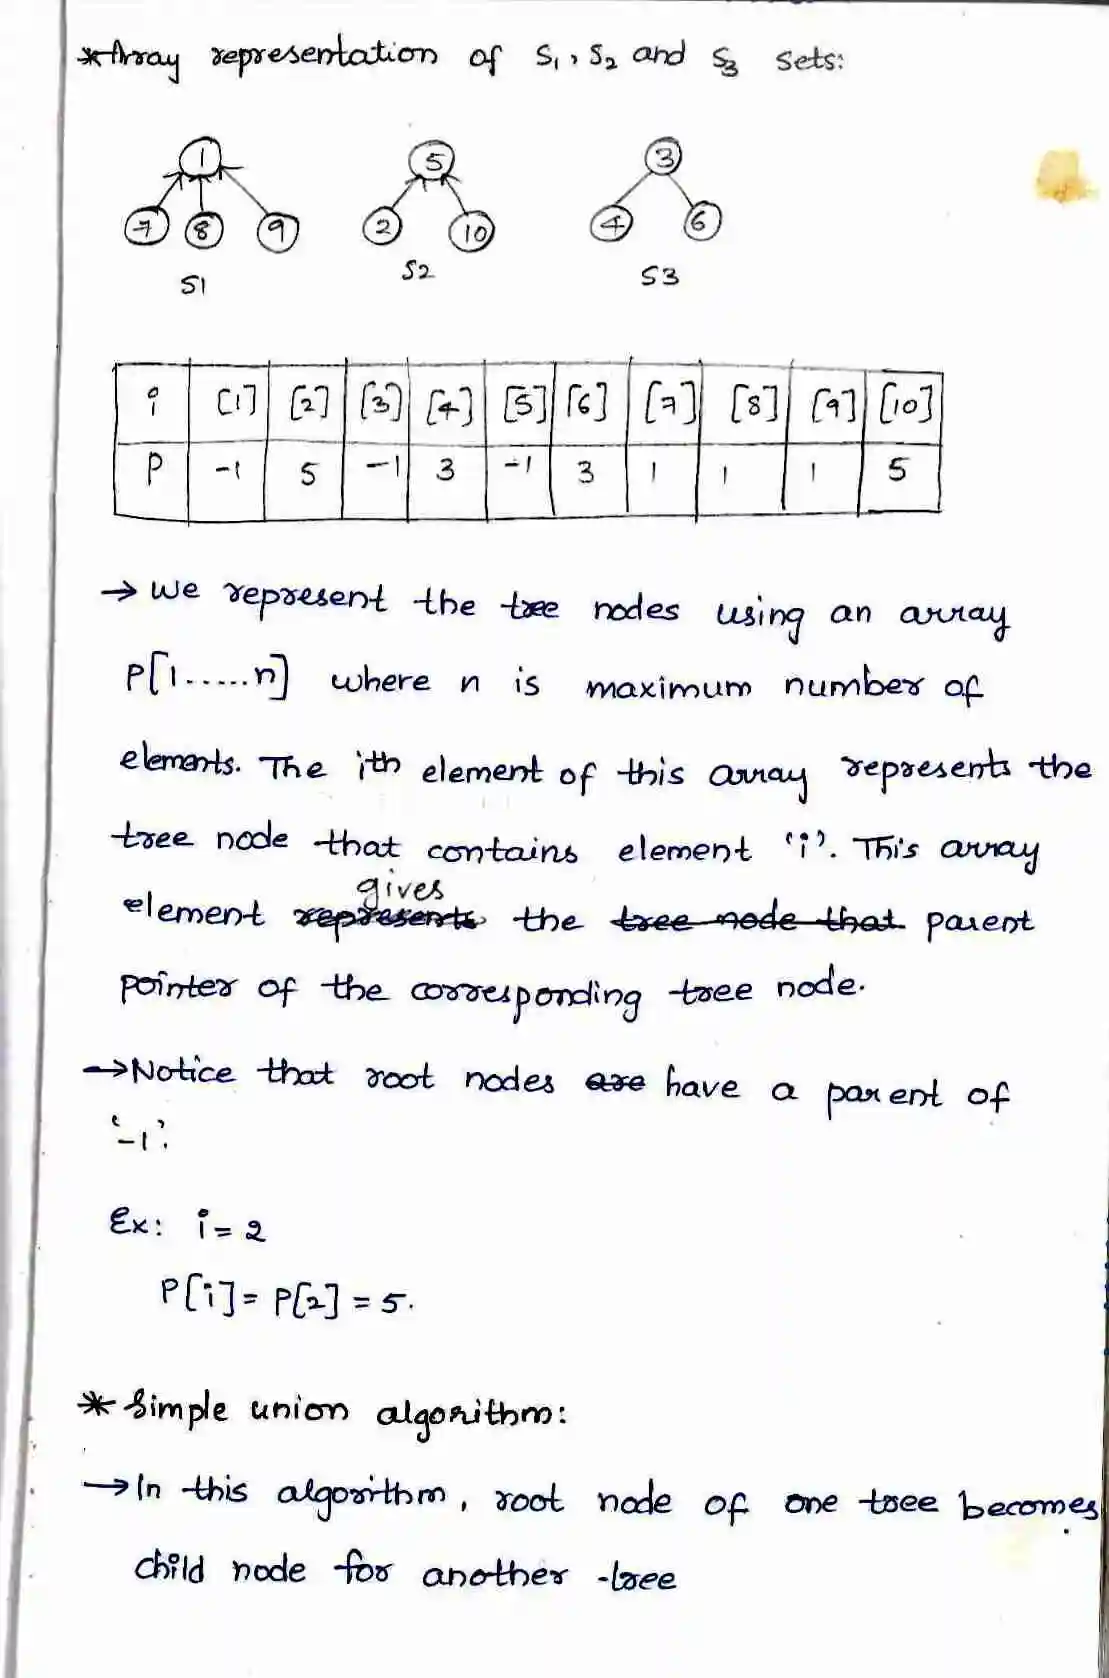 *Array representation of S₁, S₂ and S₃ sets:
1 5 3
7 8 9 2 10 4 6
S1 S2 S3
i [1] [2] [3] [4] [5] [6] [7] [8] [9] [10]
P -1 5 -1 3 -1 3 1 1 1 5
→ We represent the tree nodes using an array
P[1.....n] where n is maximum number of
elements. The ith element of this array represents the
tree node that contains element 'i'. This array
gives
element represents the tree node that parent
pointer of the corresponding tree node.
→Notice that root nodes are have a parent of
'-1'.
Ex: i = 2
P[i] = P[2] = 5.
* Simple union algorithm:
→In this algorithm, root node of one tree becomes
child node for another tree